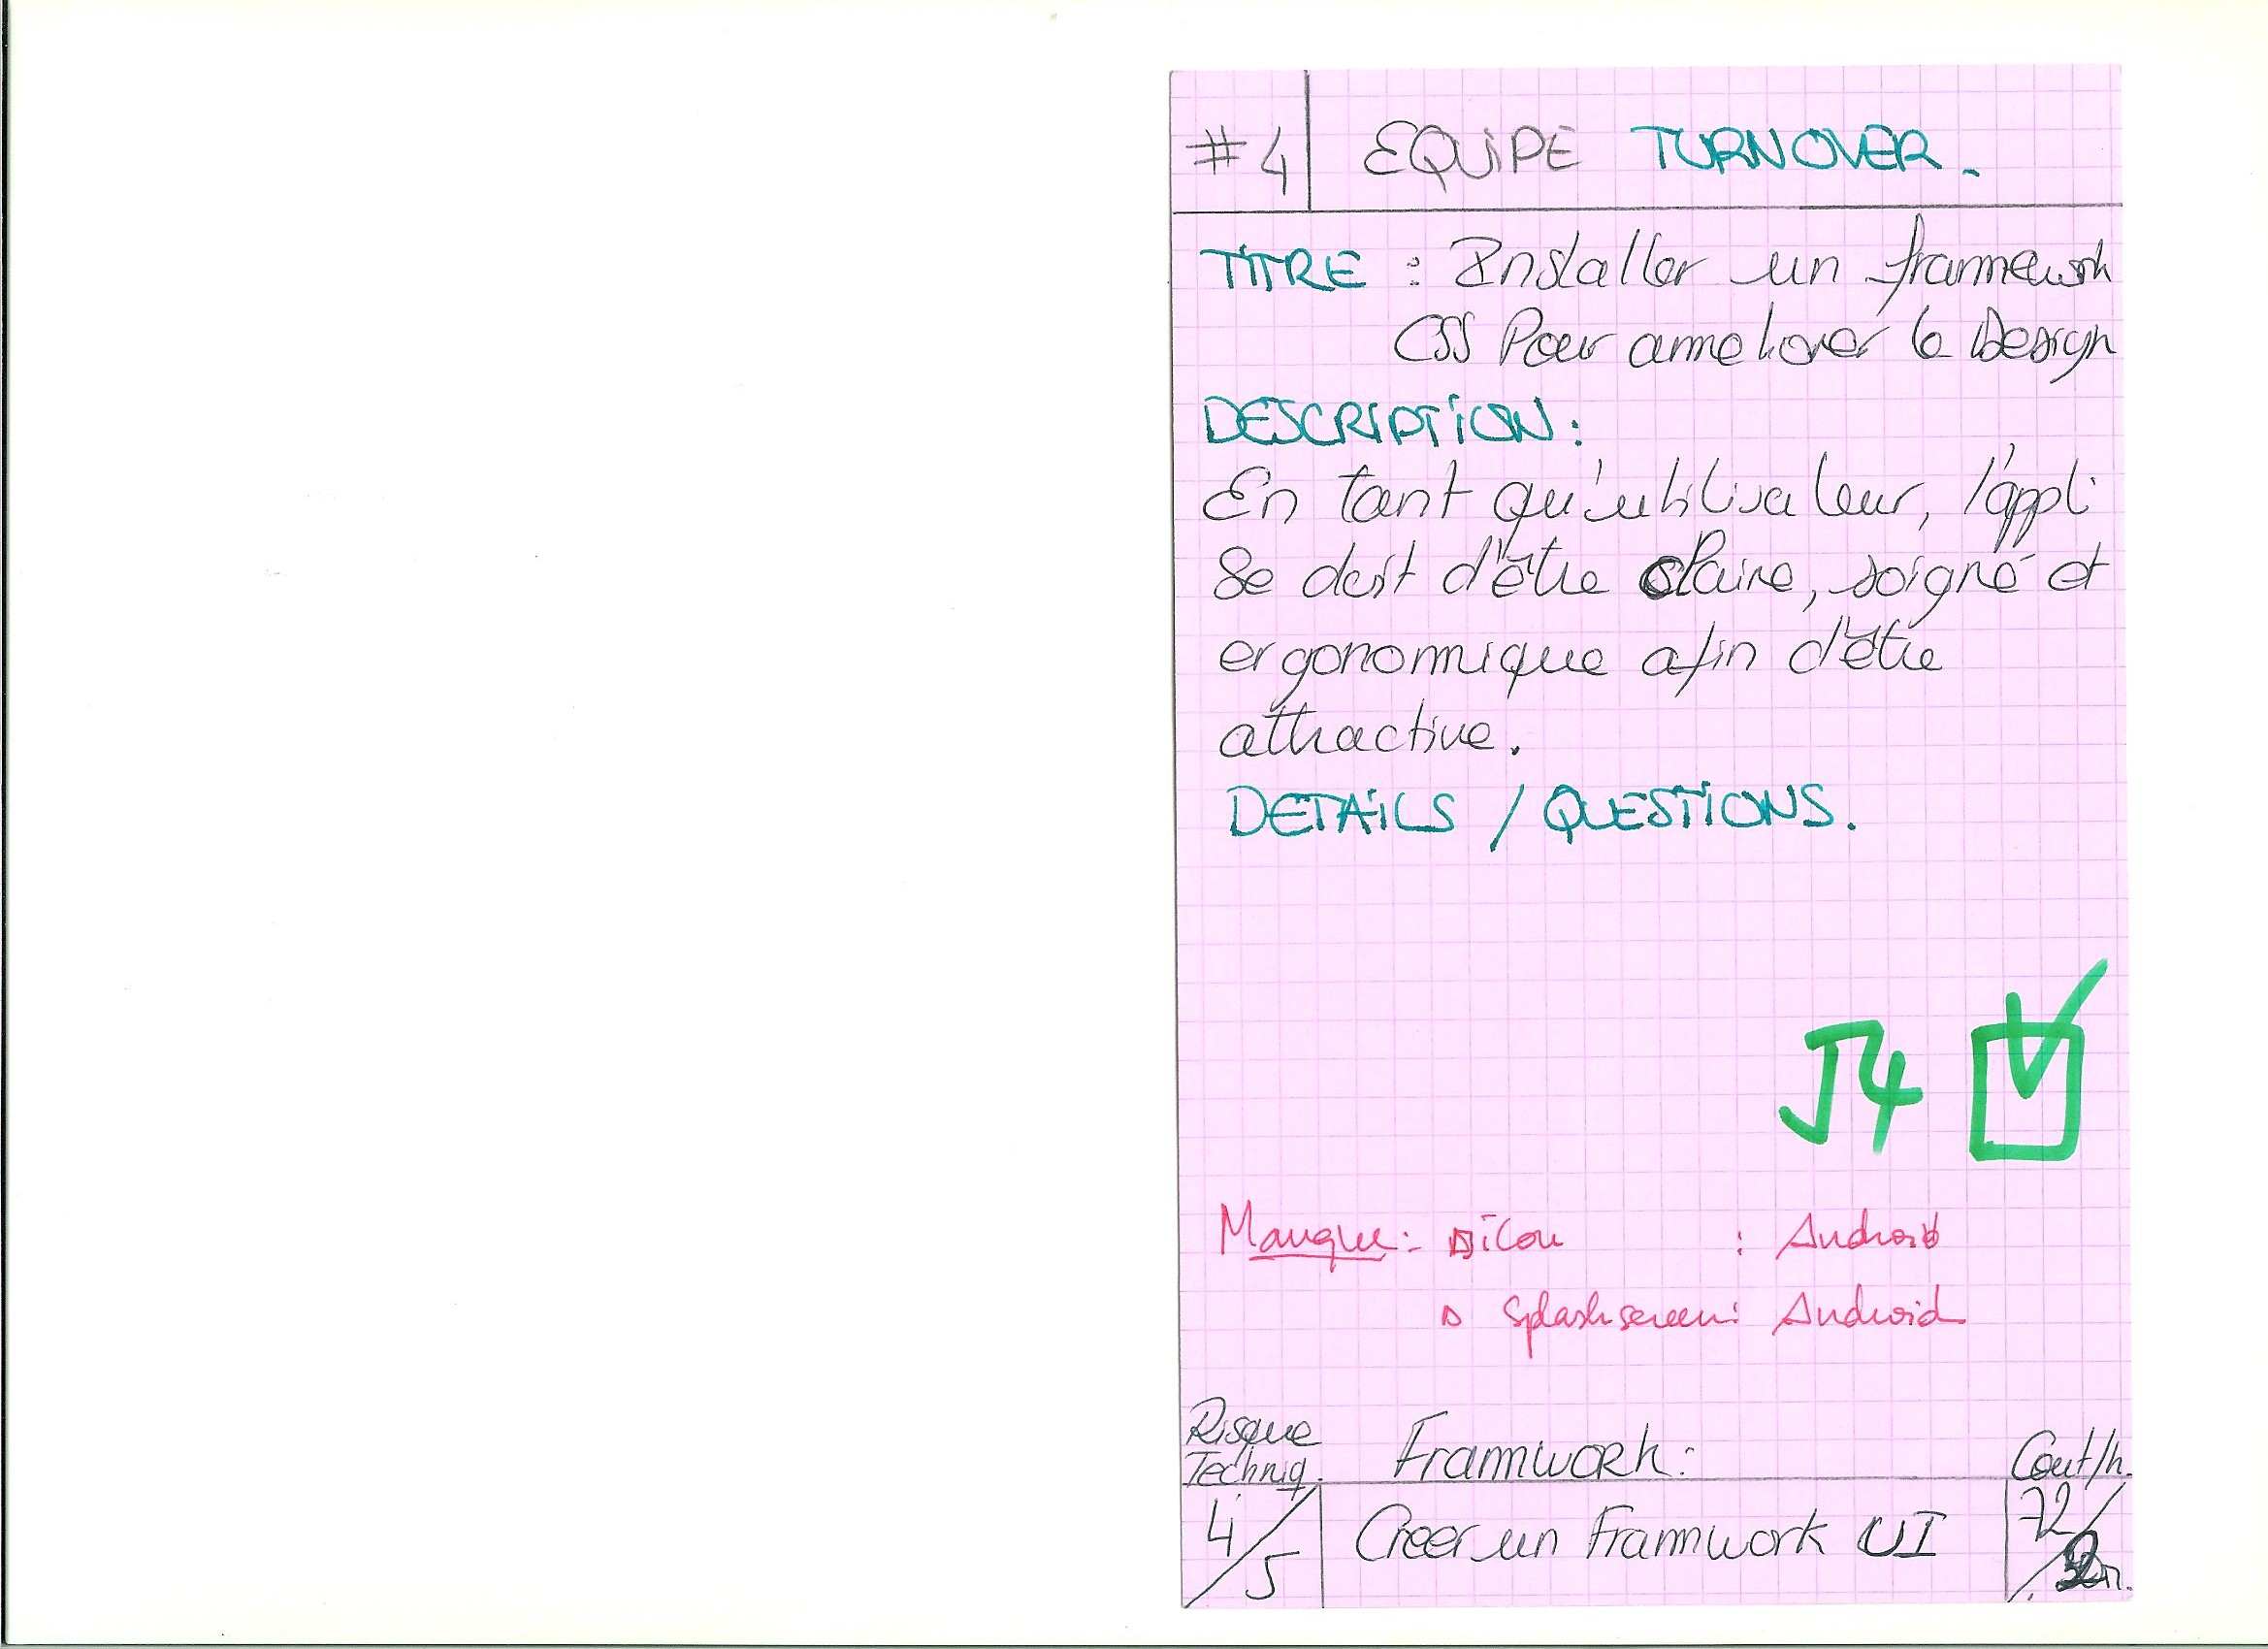 #4 EQUIPE TURNOVER.
TITRE : Installer un framework
CSS Pour ameliorer le Design
DESCRIPTION:
En tant qu'utilisateur, l'appli
se doit d'être claire, soigné et
ergonomique afin d'être
attractive.
DETAILS / QUESTIONS.
J4
Manque: icon : Android
splashscreen: Android
Risque
Techniq. Framwork: Cout/h.
4/5 Creer un Framwork UI 72/